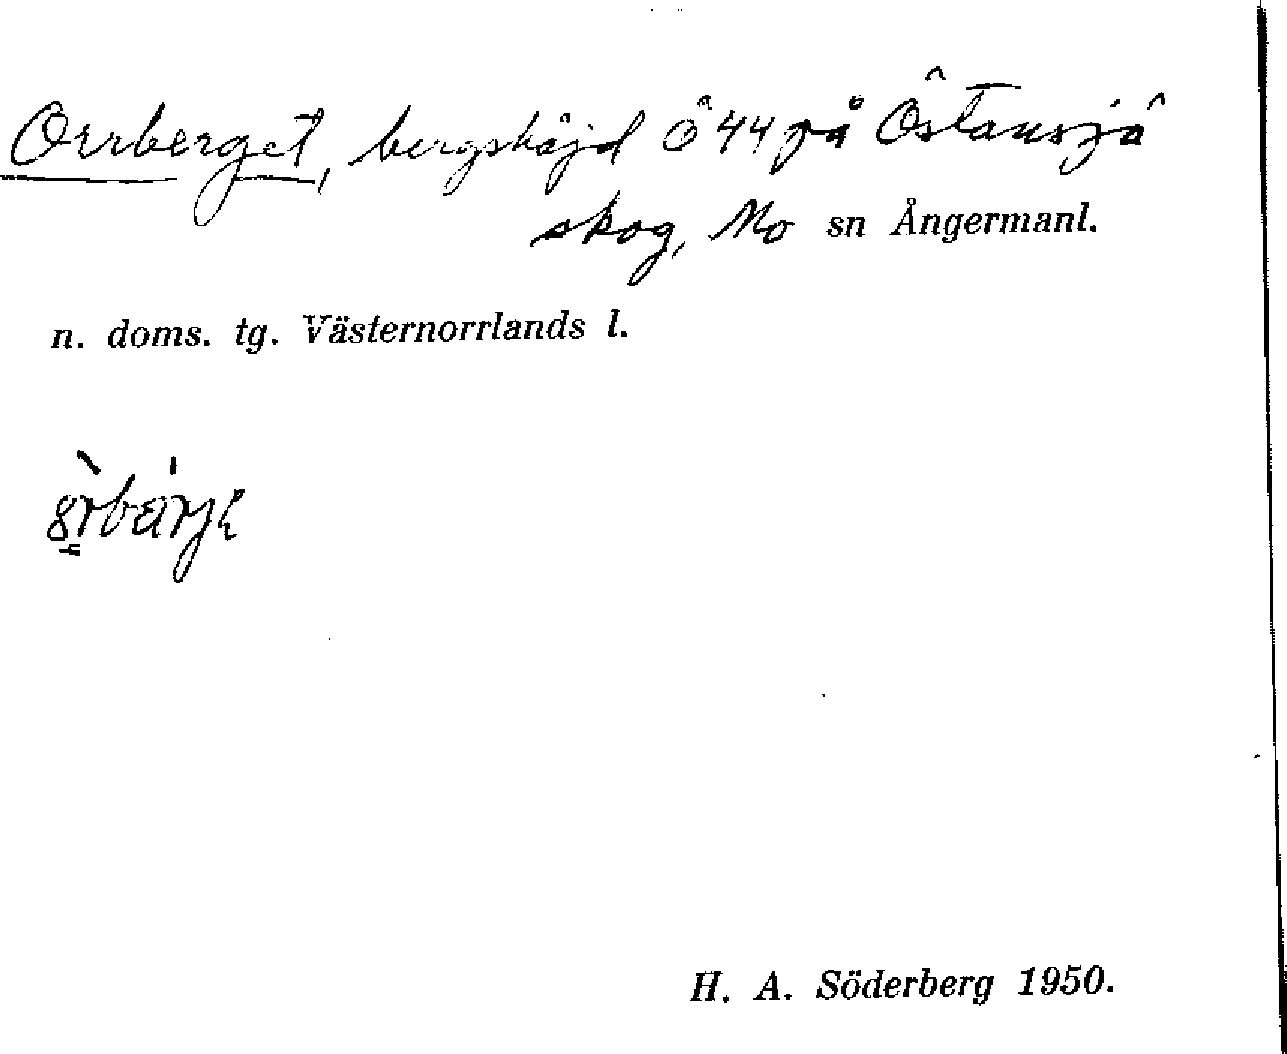 Orrberget, bergshöjd Ö 44 på Östansjö
skog, Mo sn Ångermanl.
n. doms. tg. Västernorrlands l.
H. A. Söderberg 1950.